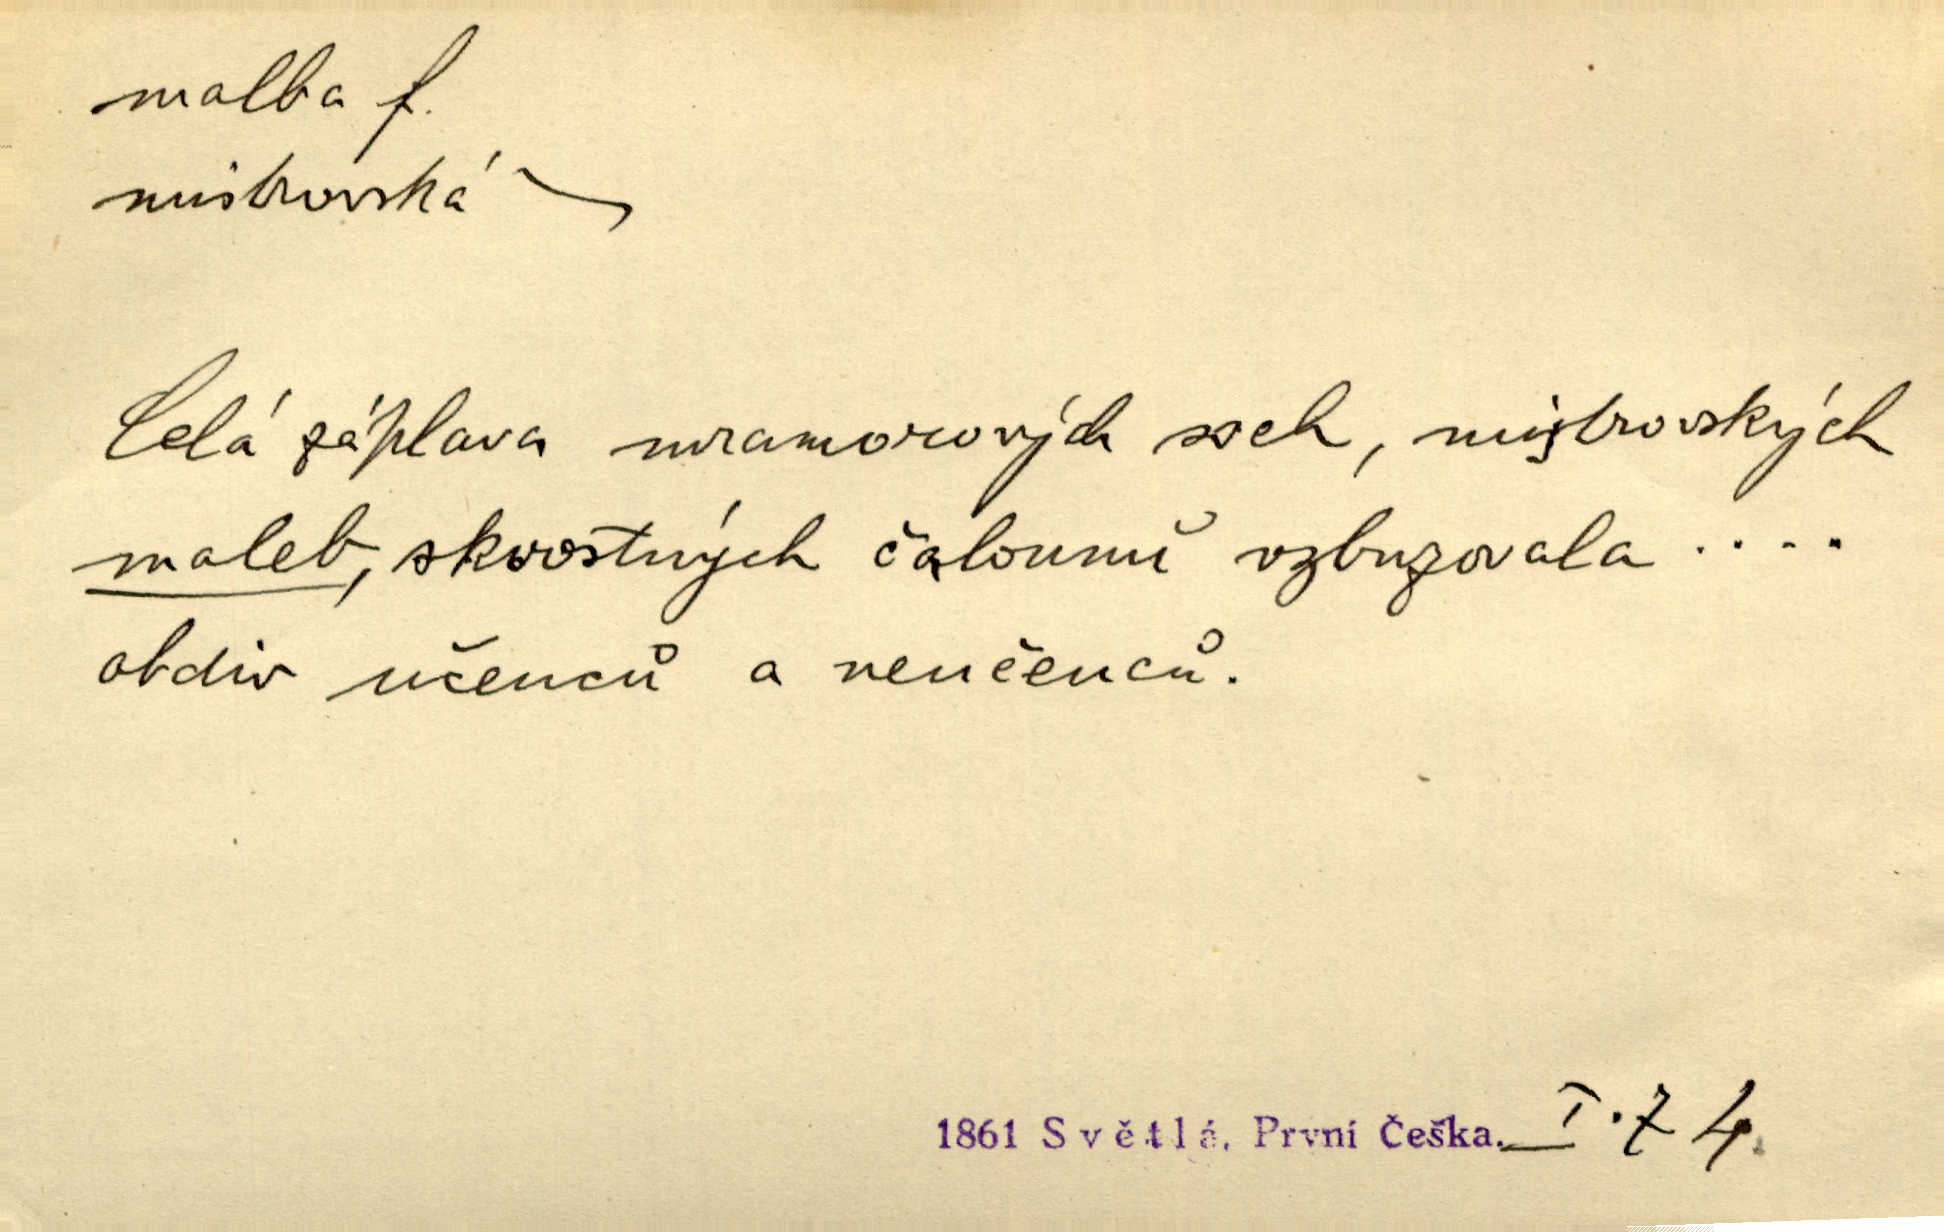 malba f.
mistrovská ~
Celá záplava mramorových soch, mistrovských
maleb, skvostných čalounů vzbuzovala ....
obdiv učenců a neučenců.
1861 Světlá, První Češka. I.74.